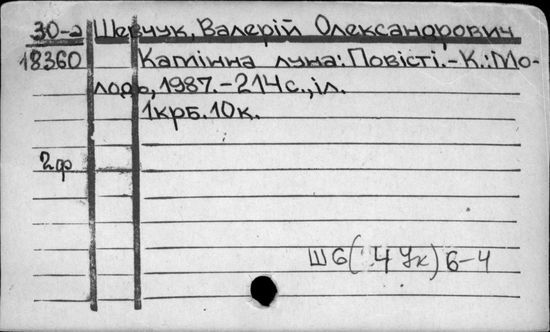 30-а Шевчук, Валерій Олександрович
18360 Камінна луна: Повісті.-К.:Мо-
лодь, 1987.-214с., іл.
1крб.10к.
2ф
Ш6(4Ук)6-4